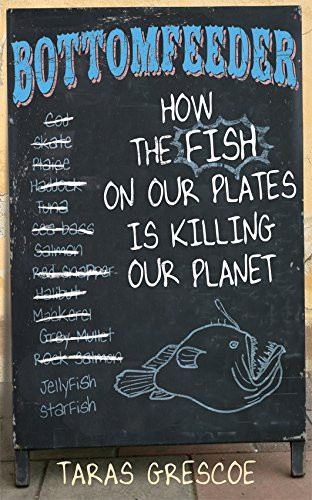 BOTTOMFEEDER
HOW
THE FISH
ON OUR PLATES
IS KILLING
OUR PLANET
Cod
Skate
Plaice
Haddock
Tuna
Sea bass
Salmon
Red snapper
Halibut
Mackerel
Grey Mullet
Rock Salmon
Jellyfish
Starfish
TARAS GRESCOE